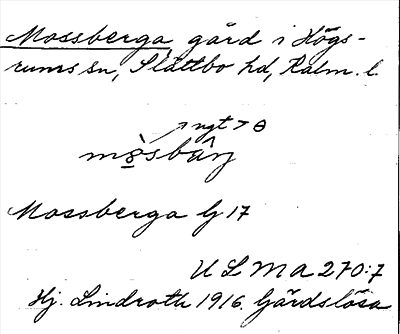 Mossberga, gård i Högs-
rums sn, Slättbo hd, Kalm. l.
ngt > ɵ
mɵ̀sbâr̨
Mossberga by 17
ULMA 270:7
Hj. Lindroth 1916. Gärdslösa